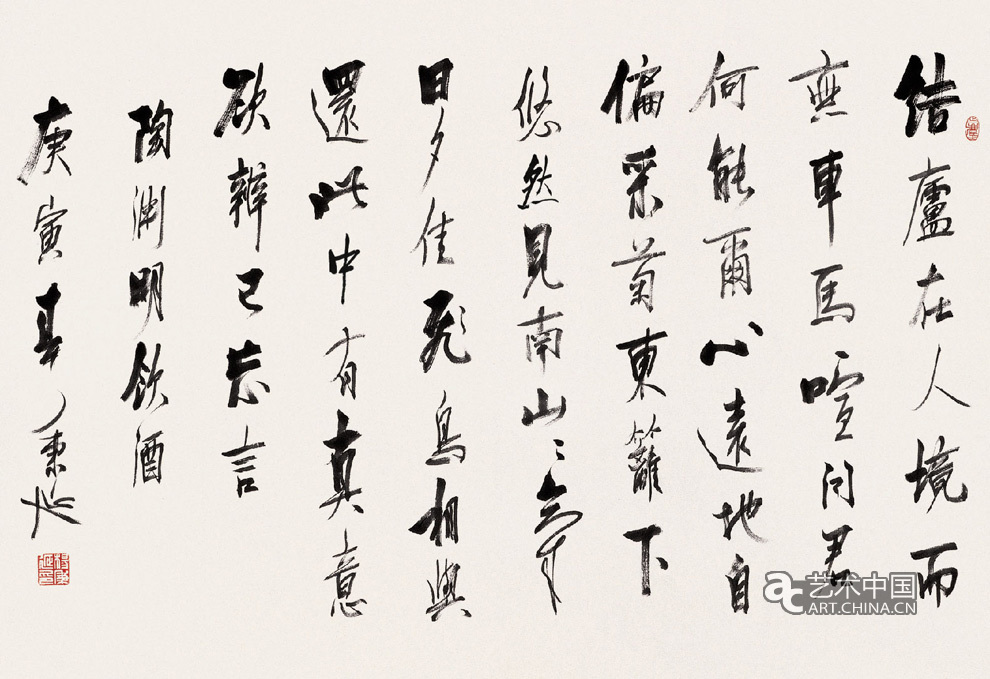 結廬在人境而
無車馬喧問君
何能爾心遠地自
偏采菊東籬下
悠然見南山〻氣
日夕佳飛鳥相與
還此中有真意
欲辨已忘言
陶淵明飲酒
庚寅春
艺术中国
ART.CHINA.CN